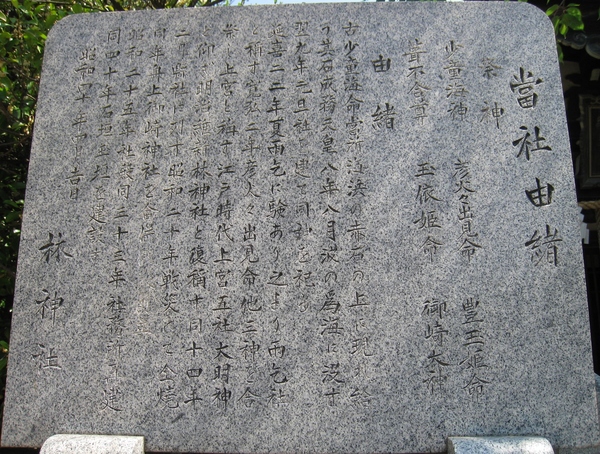 當社由緒
祭神
少童海神 彦火々出見命 豊玉姫命
葺不合尊 玉依姫命 御崎大神
由緒
古少童海命当所海浜の赤石の上に現れ給
う其石成務天皇八年八月波の為海に没す
翌九年元旦社を建て同神を祀る
延喜二二年夏雨乞に験あり之より雨乞社
と称す寛弘二年彦火々出見命他三神を合
祭し上宮と称す江戸時代上宮五社大明神
と仰ぐ明治維新林神社と復称す同十四年
二月縣社に列す昭和二十年戦災にて全焼
同年貴上御崎神社を合祭
昭和二十五年社殿同三十三年社務所再建
同四十年石垣玉垣を建設す
昭和四十年十月吉日
林神社